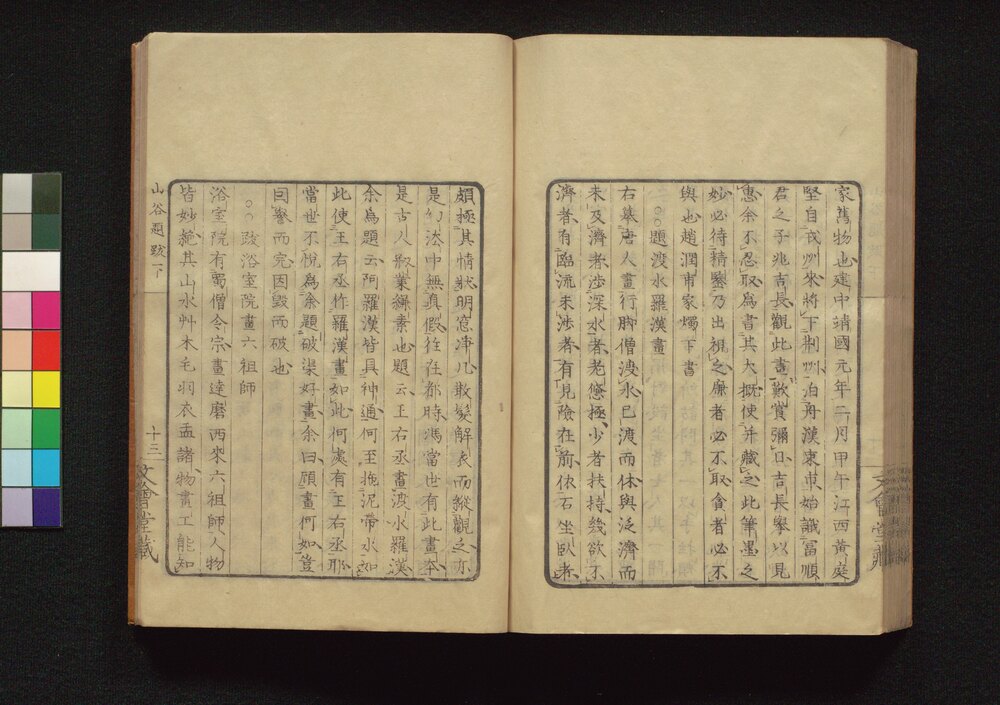 家舊物也建中靖國元年二月甲午江西黃庭
堅自戎州來將下荊州泊舟漢東市始識富順
君之子兆吉長觀此畫歎賞彌日吉長擧以見
惠余不忍取爲書其大槪使并藏之此筆墨之
妙必待精鑒乃出視之廉者必不取貪者必不
與也趙潤甫家燭下書
○○題渡水羅漢畫
右摹唐人畫行脚僧渡水已渡而休與泛濟而
未及濟者涉深水者老憊極少者扶持幾欲不
濟者有臨流未涉者有見險在前依石坐臥者
頗極其情狀明窓淨几散髮解衣而縱觀之亦
是幻法中無眞假往在都時馮當世有此畫本
是古人敗業縑素也題云王右丞畫渡水羅漢
余爲題云阿羅漢皆具神通何至拖泥帶水如
此使王右丞作羅漢畫如此何處有王右丞耶
當世不悅爲余題破渠好畫余曰顧畫何如豈
因譽而完因毀而破也
○○跋浴室院畫六祖師
浴室院有蜀僧令宗畫達磨西來六祖師人物
皆妙絕其山水艸木毛羽衣盂諸物畫工能知
山谷題跋一下
十三
文會堂藏
文會堂藏